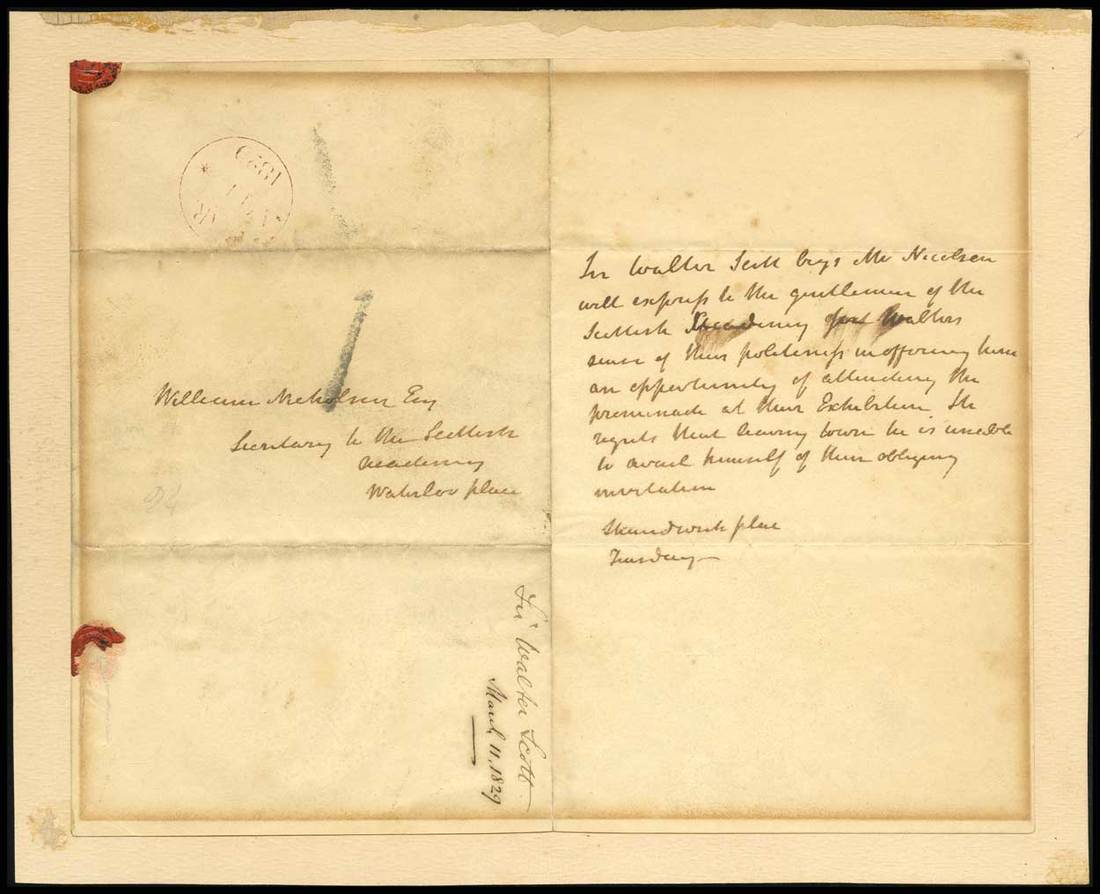 1829
William Nicholson Esq
Secretary to the Scottish
Academy
Waterloo place
Sir Walter Scott
March 11, 1829
Sir Walter Scott begs Mr Nicolson
will express to the gentlemen of the
Scottish Academy Sir Walters
sense of their politeness in offering him
an opportunity of attending the
promenade at their Exhibition He
regrets that leaving town he is unable
to avail himself of their obliging
invitation
Shandwick place
Tuesday